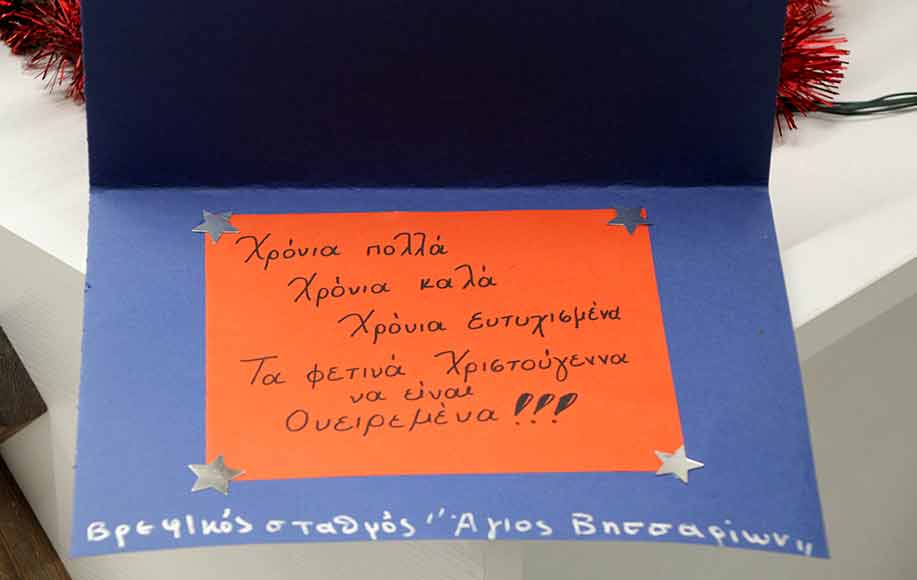 Χρόνια πολλά
Χρόνια καλά
Χρόνια ευτυχισμένα
Τα φετινά Χριστούγεννα
να είναι
Ονειρεμένα !!!
Βρεφικός σταθμός "Άγιος Βησσαρίων"